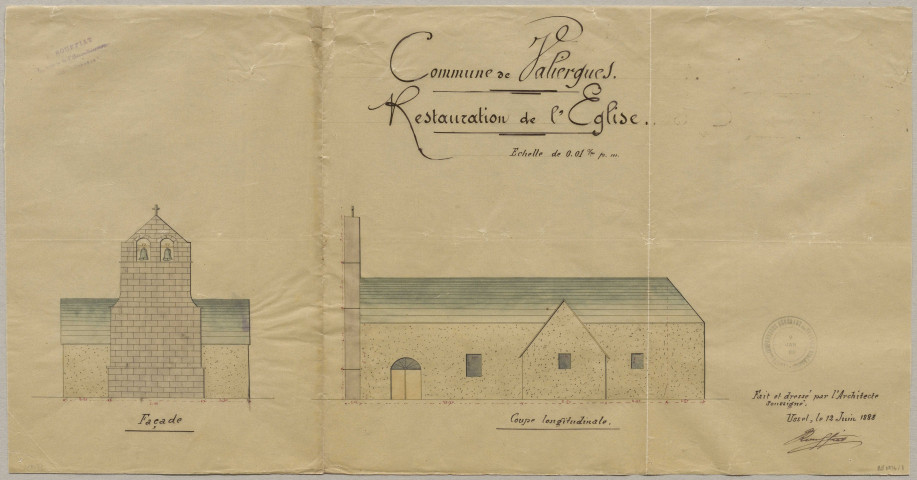 Commune de Valiergues.
Restauration de l'Eglise.
Echelle de 0.01 p. m.
Façade
Coupe longitudinale.
Fait et dressé par l'Architecte
soussigné.
Ussel, le 12 Juin 1888